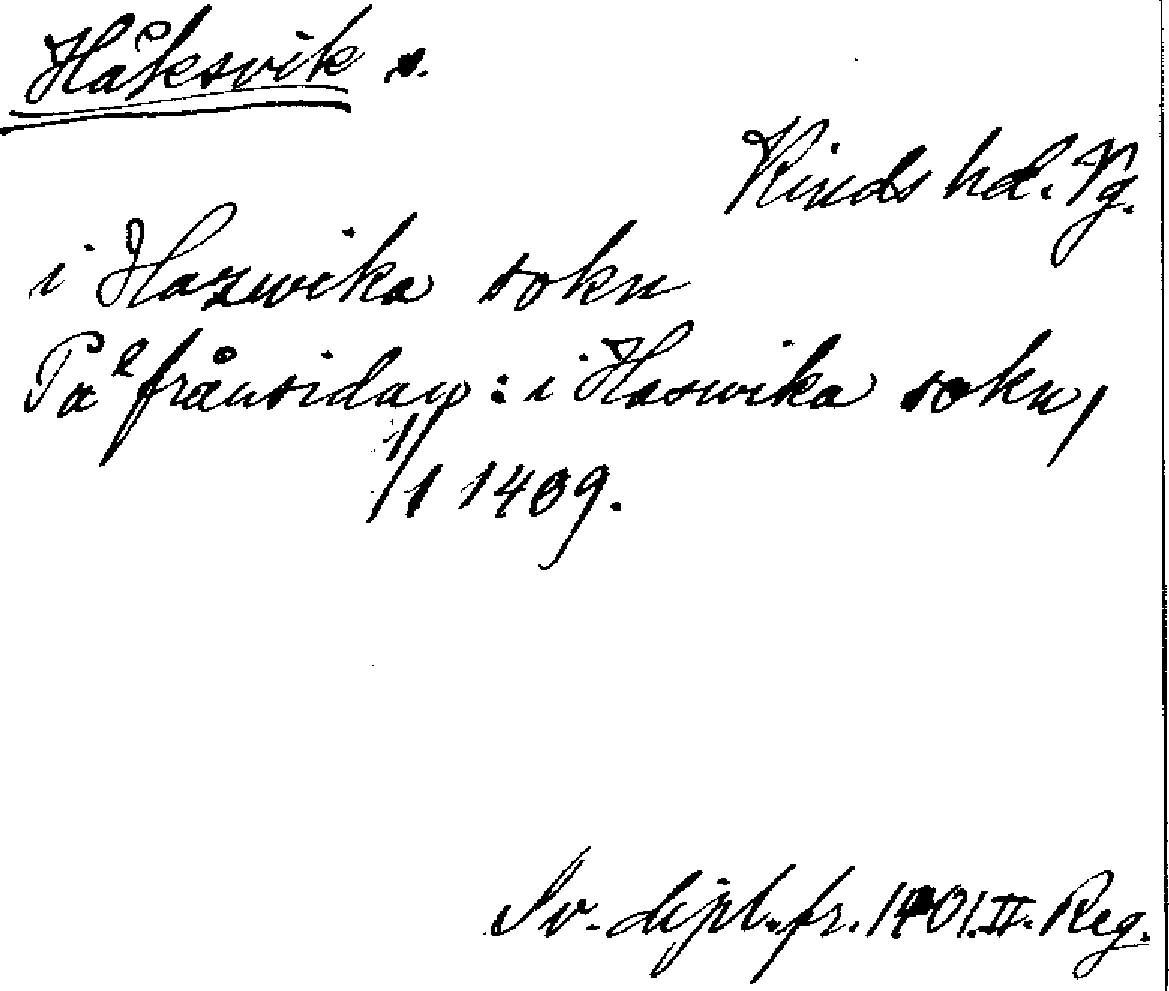 Håksvik s.
Kinds hd. Vg.
i Hazwika sokn
På frånsidan: i Haswika sokn,
1/1 1409.
Sv. dipl. fr. 1401. II. Reg.